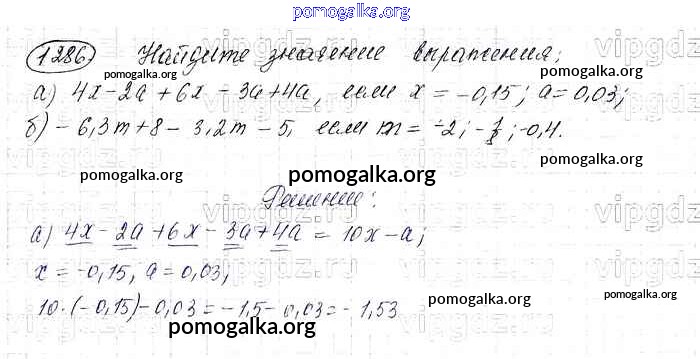 pomogalka.org
1286. Найдите значение выражения:
pomogalka.org
а) 4x-2a+6x-3a+4a, если x=-0,15; a=0,03;
б) -6,3m+8-3,2m-5, если m=-2; -1; -0,4.
pomogalka.org pomogalka.org pomogalka.org
Решение:
а) 4x-2a+6x-3a+4a=10x-a;
x=-0,15, a=0,03;
pomogalka.org
10·(-0,15)-0,03=-1,5-0,03=-1,53
pomogalka.org
pomogalka.org